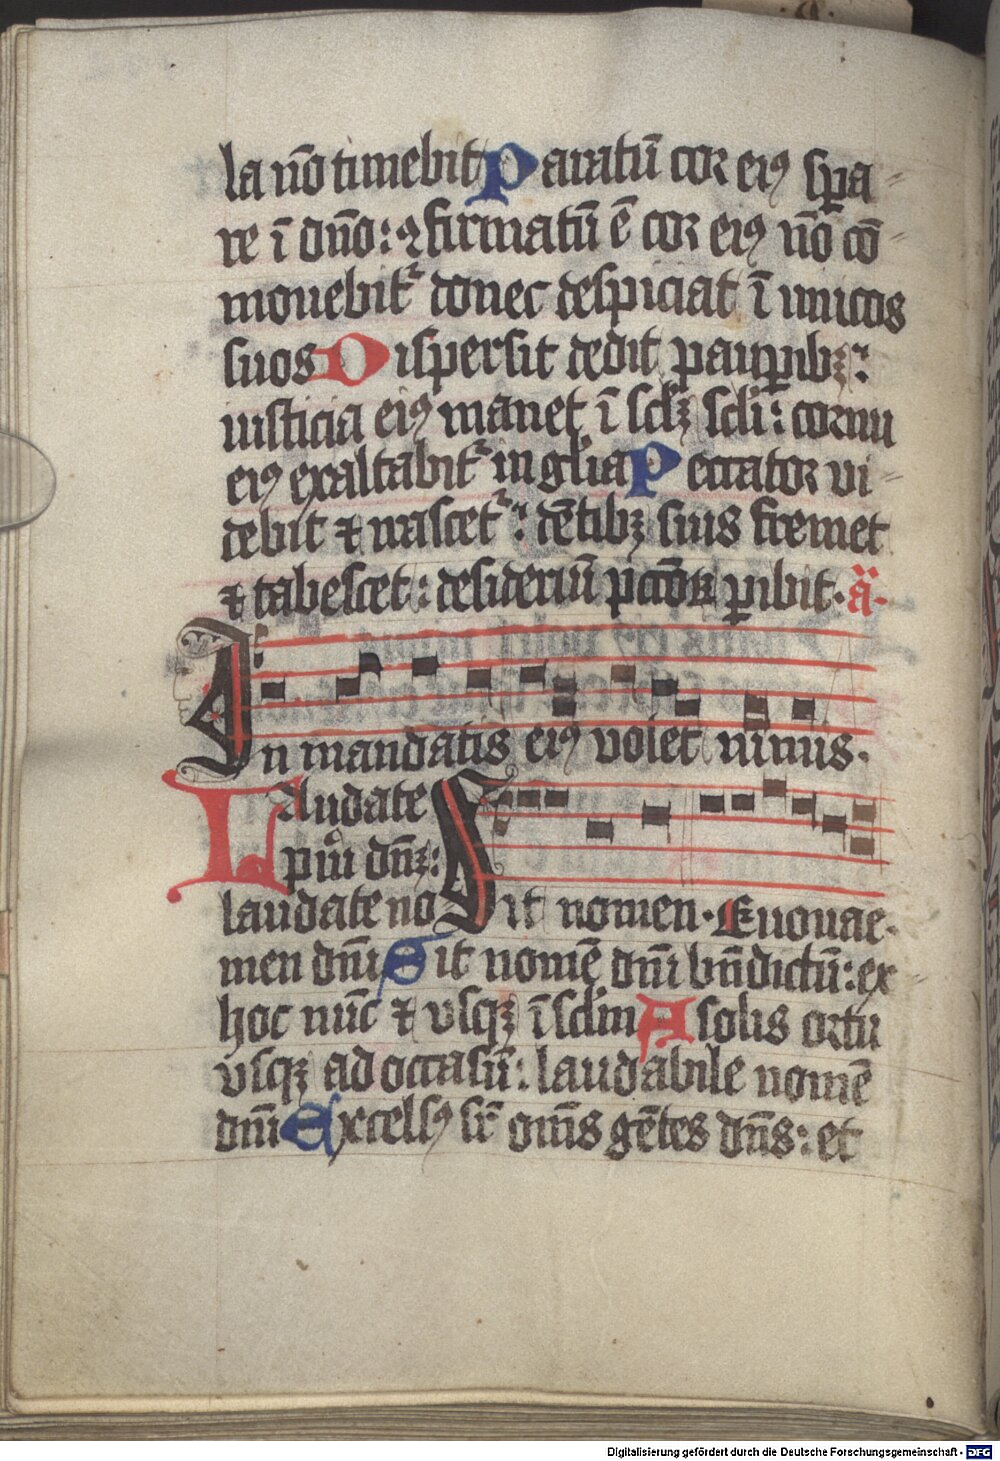 la nō timebit Paratū cor eiꝯ spa
re ī dn̄o: ⁊firmatū ē cor eiꝯ nō cō
mouebit᷑ donec despiciat ī imicos
suos Dispersit dedit paup̄ibꝫ:
iusticia eiꝯ manet ī sclꝫ scli: cornu
eiꝯ exaltabit᷑ in gl̄ia Peccator vi
debit ⁊ irascet᷑: dētibꝫ suis fremet
⁊ tabescet: desideriū pc̄cōꝝ ꝑibit· a·
In mandatis eiꝯ volet nimis·
Laudate
pu̾i dn̄ꝫ:
laudate no Sit nomen· Euouae·
men dn̄i Sit nomē dn̄i bn̄dictū: ex
hoc nūc ⁊ vsqꝫ ī sclm̄ A solis ortu
vsqꝫ ad occasū: laudabile nomē
dn̄i Excelsꝯ sr̄ om̄s gētes dn̄s: et
Digitalisierung gefördert durch die Deutsche Forschungsgemeinschaft - DFG